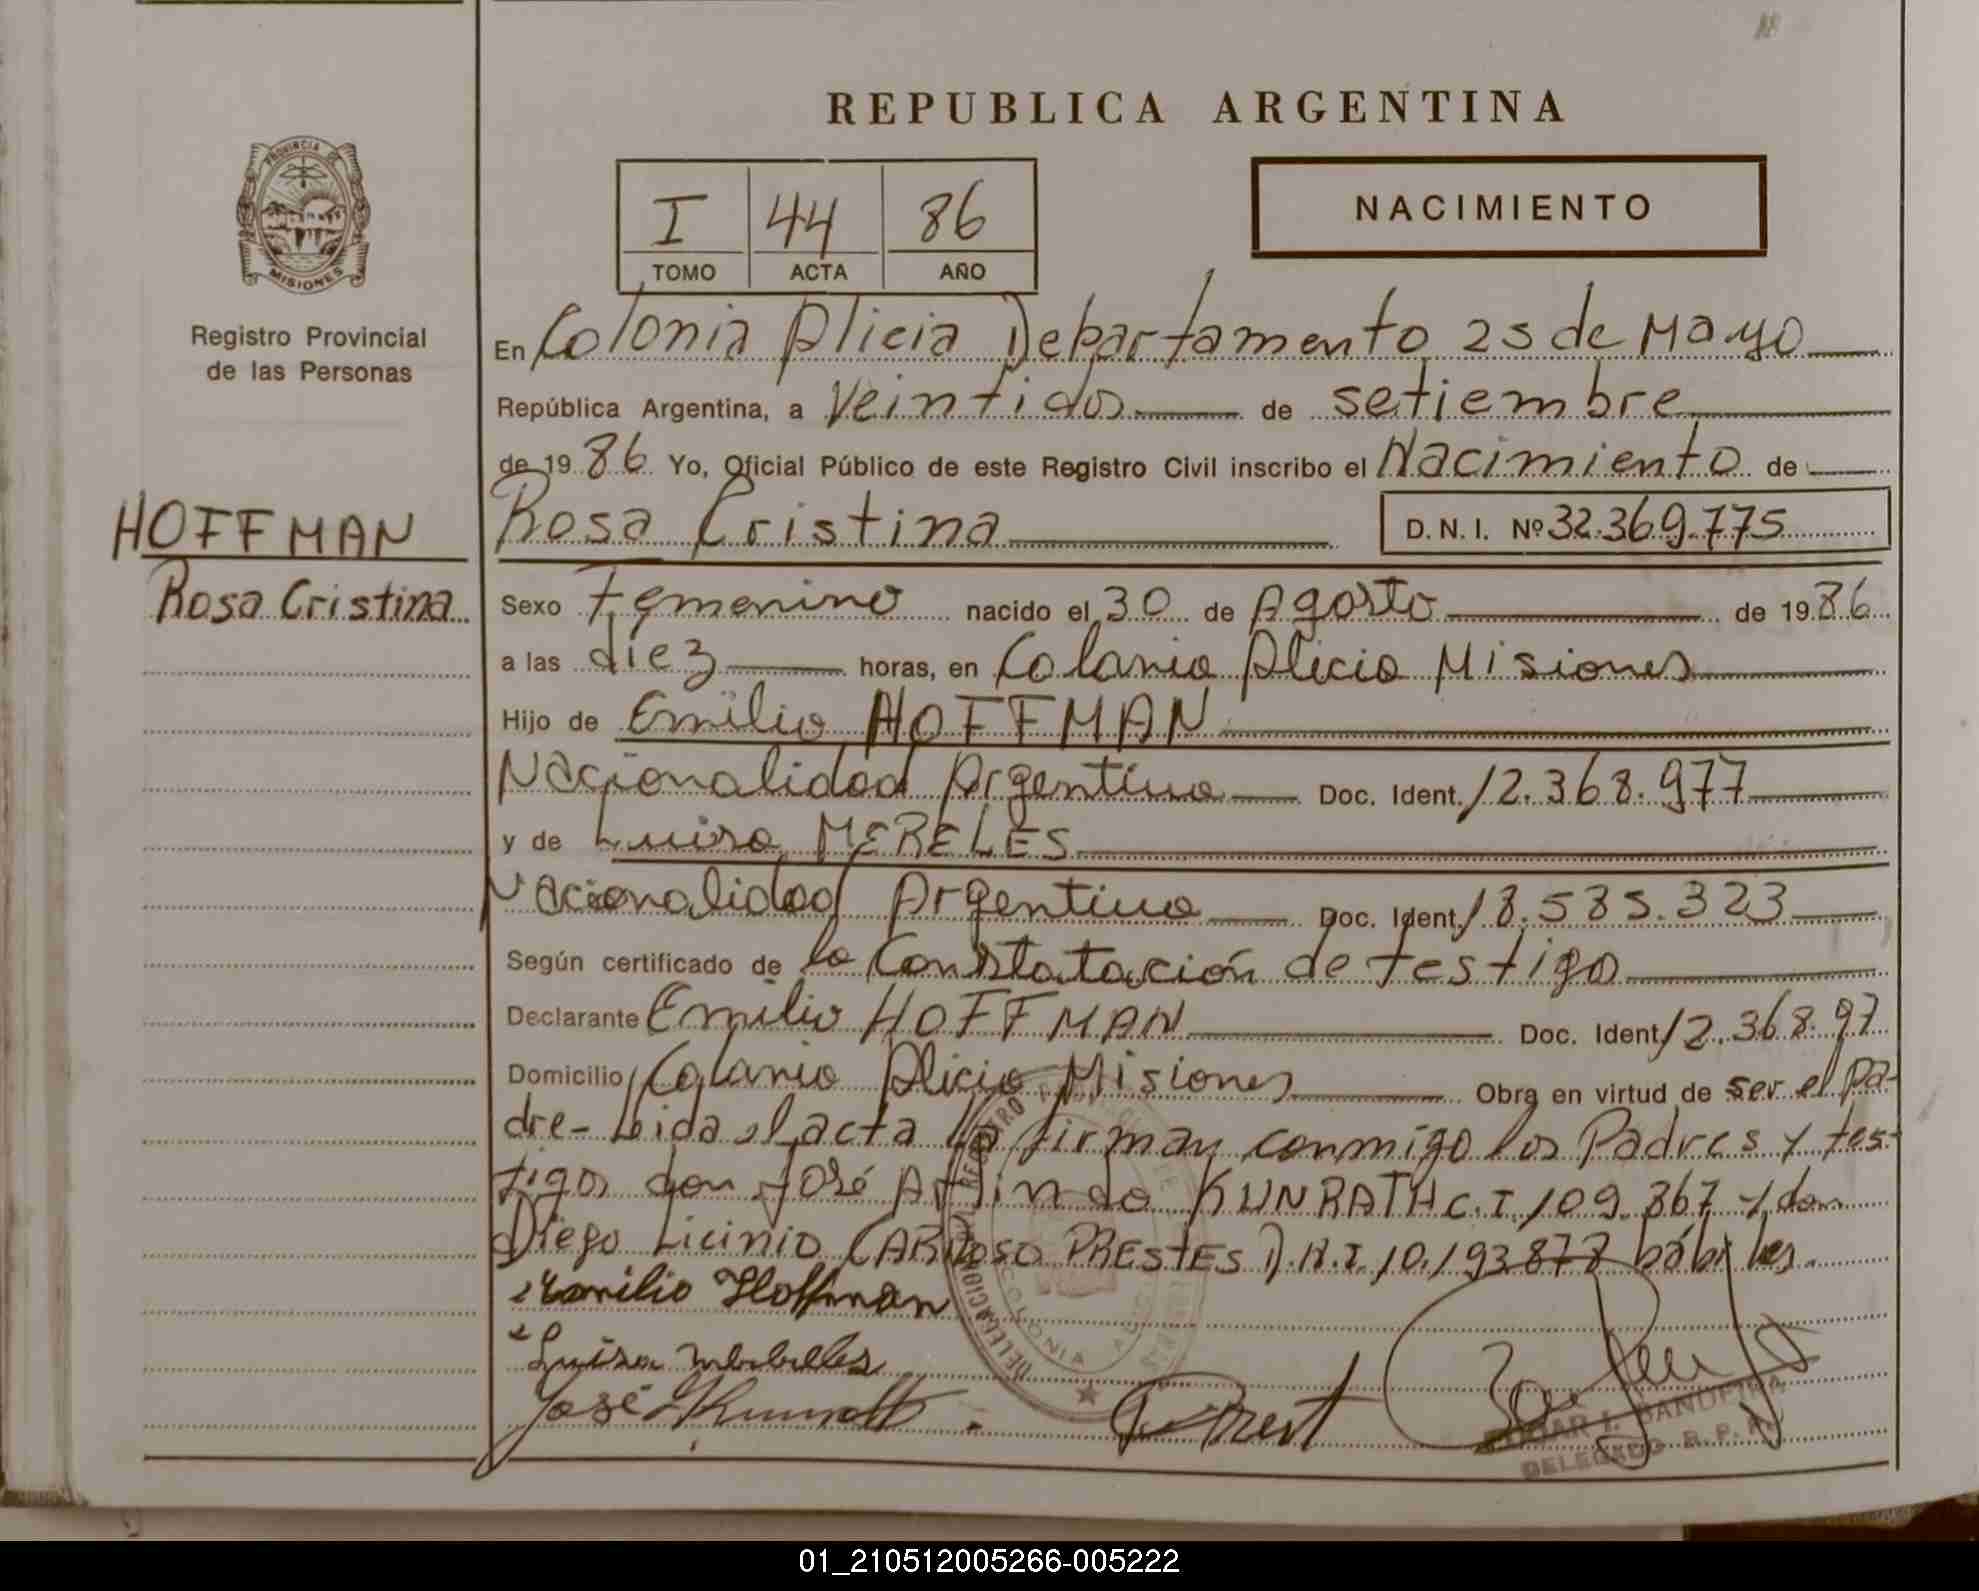 REPUBLICA ARGENTINA
PROVINCIA DE
MISIONES
Registro Provincial
de las Personas
I 44 86
TOMO ACTA AÑO
NACIMIENTO
En Colonia Alicia Departamento 25 de Mayo
República Argentina, a Veintidos de setiembre
de 19 86 Yo, Oficial Público de este Registro Civil inscribo el Nacimiento de
HOFFMAN
Rosa Cristina
Rosa Cristina D.N.I. Nº 32.369.775
Sexo Femenino nacido el 30 de Agosto de 19 86
a las diez horas, en Colonia Alicia Misiones
Hijo de Emilio HOFFMAN
Nacionalidad Argentina Doc. Ident. 12.368.977
y de Luisa MERELES
Nacionalidad Argentina Doc. Ident. 18.585.323
Según certificado de la Constatación de testigo
Declarante Emilio HOFFMAN Doc. Ident. 12.368.97
Domicilio Colonia Alicia Misiones Obra en virtud de ser el pa-
dre- Leida el acta la firman conmigo los Padres y tes-
tigos don José Arlindo KUNRATH C.I. 109.867 y don
Diego Licinio CARDOSO PRESTES D.N.I. 10.193.878 hábiles
Emilio Hoffman
Luisa Mereles
José
DELEGADO R. P. P.
COLONIA
01_210512005266-005222